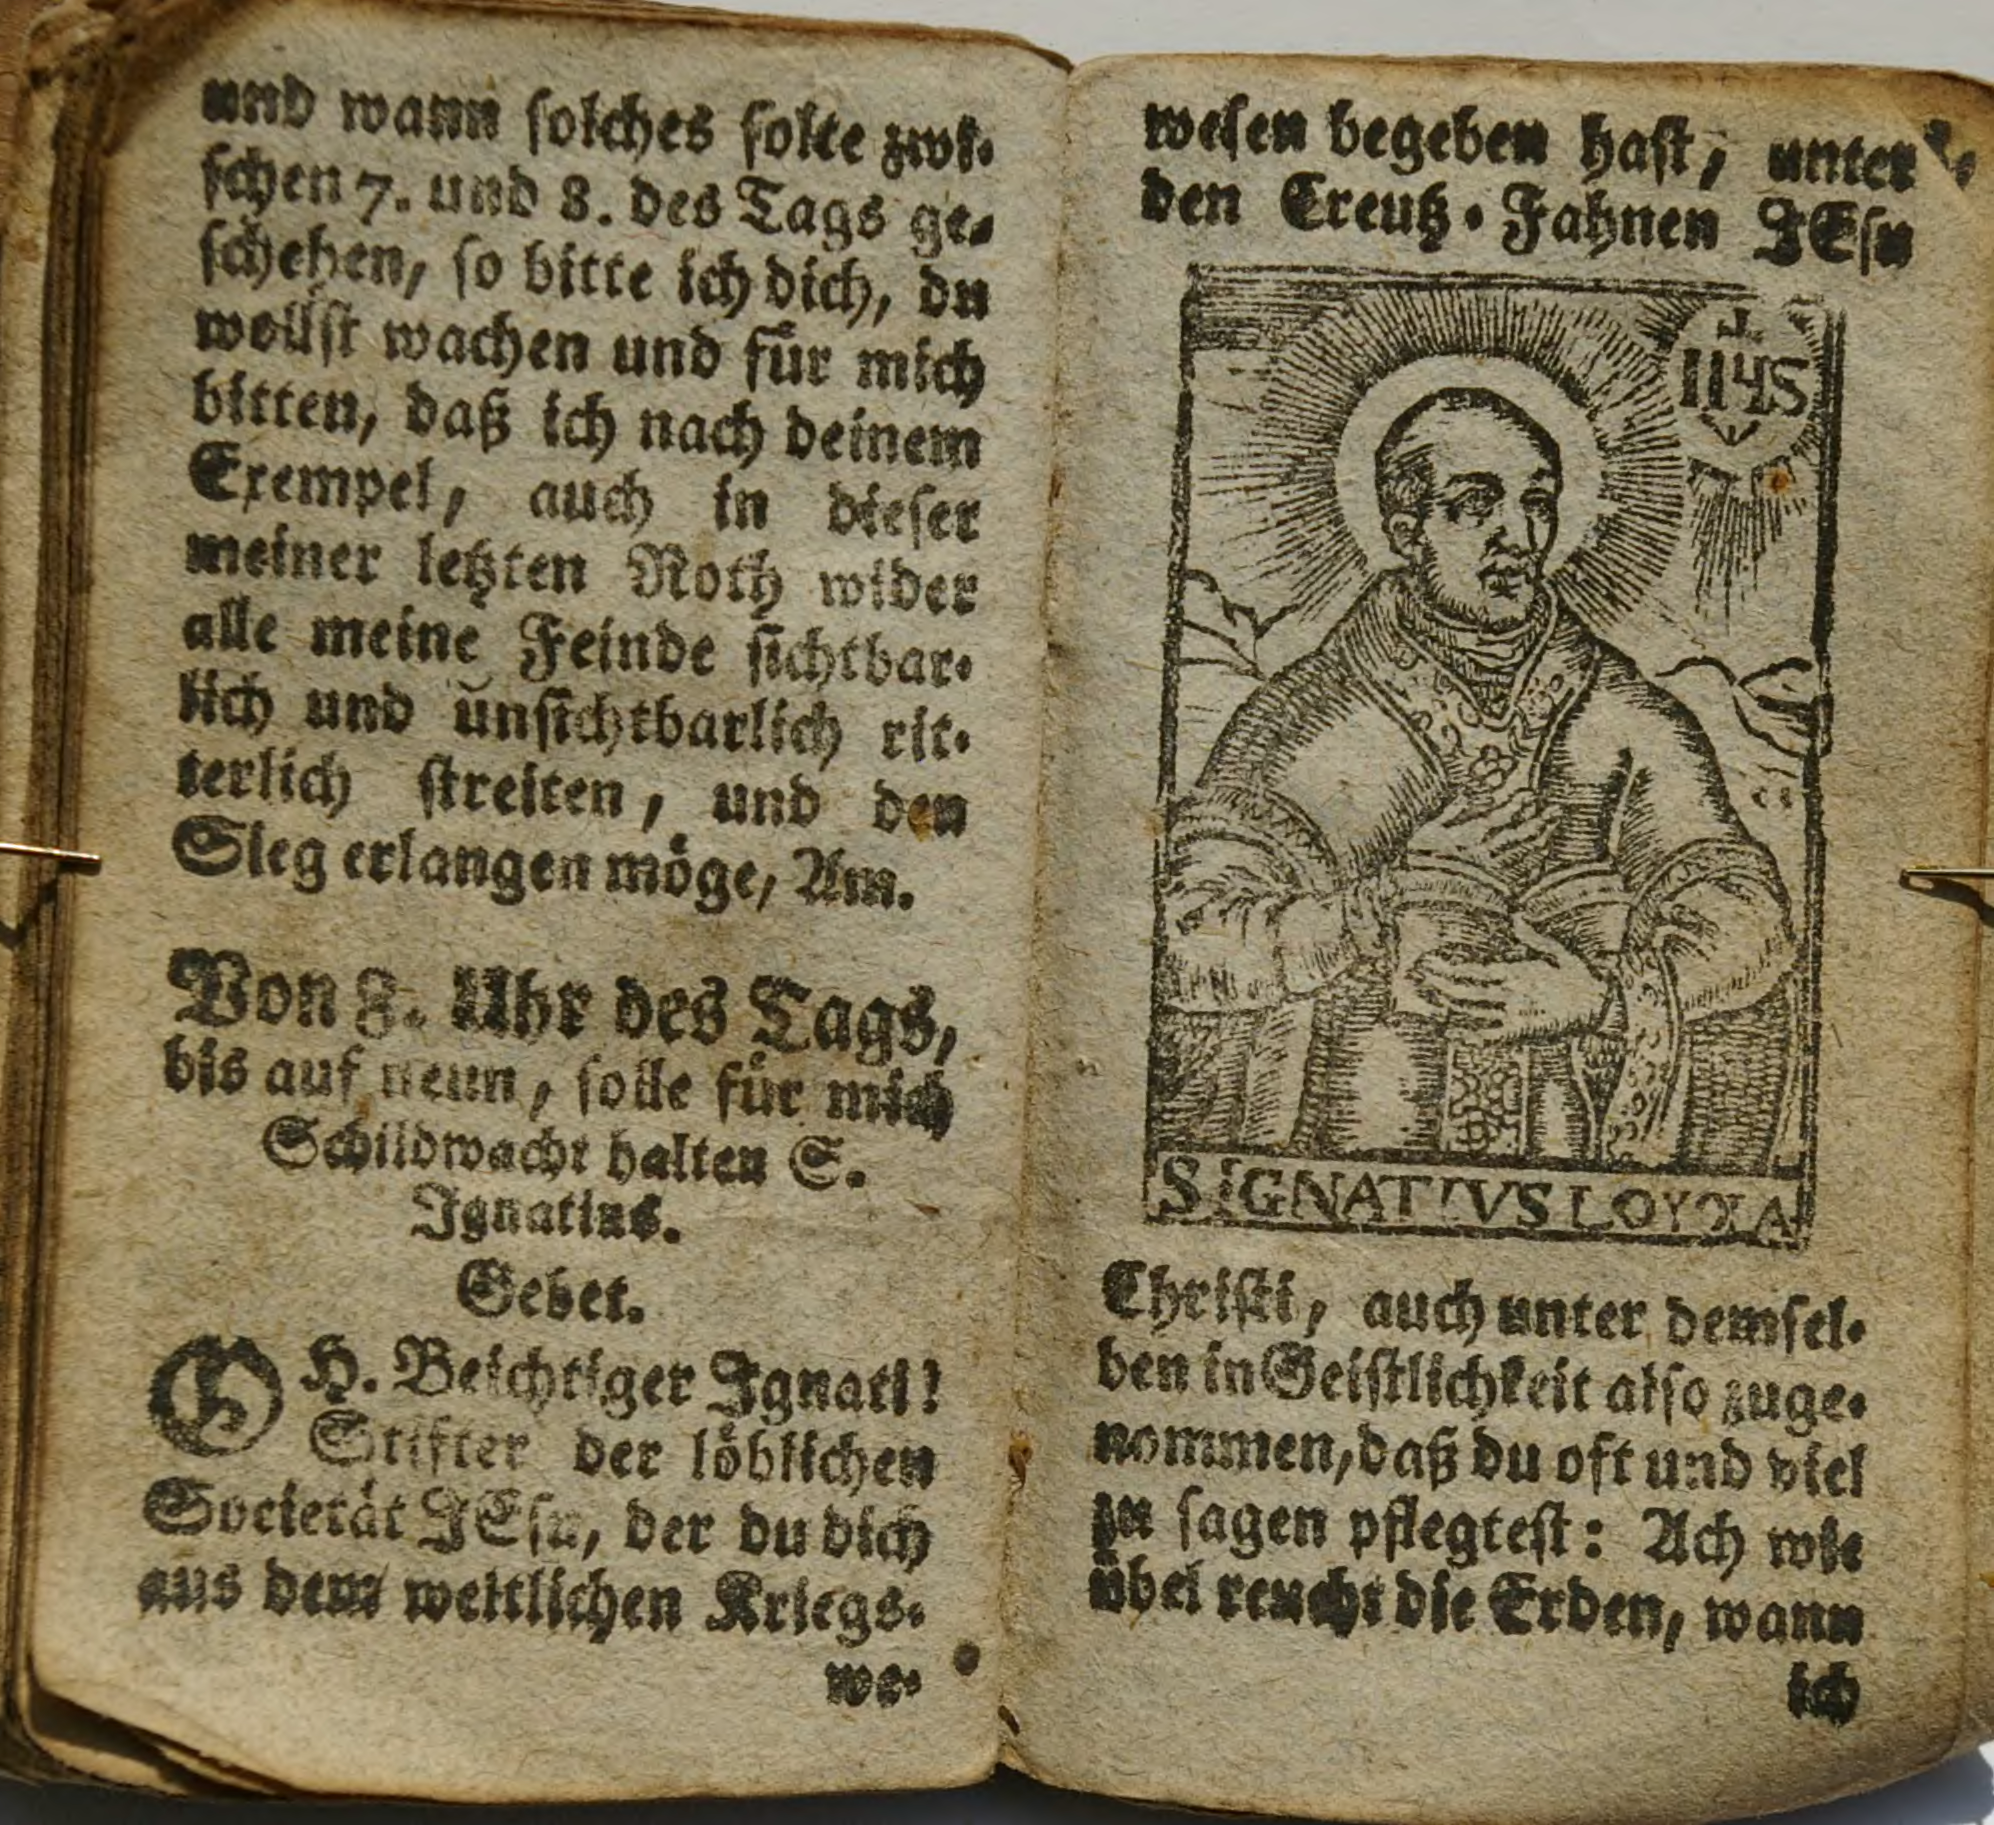 und wann solches solte zwi-
schen 7. und 8. des Tags ge-
schehen, so bitte ich dich, du
wollst wachen und für mich
bitten, daß ich nach deinem
Exempel, auch in dieser
meiner letzten Noth wider
alle meine Feinde sichtbar-
lich und unsichtbarlich rit-
terlich streiten, und den
Sieg erlangen möge, Am.
Von 8. Uhr des Tags,
bis auf neun, solle für mich
Schildwacht halten S.
Ignatius.
Gebet.
O H. Beichtiger Ignati!
Stifter der löblichen
Societät JEsu, der du dich
aus dem weltlichen Kriegs-
we-
wesen begeben hast, unter
den Creutz-Fahnen JEsu
IHS
S IGNATIVS LOYOLA
Christi, auch unter demsel-
ben in Geistlichkeit also zuge-
nommen, daß du oft und viel
zu sagen pflegtest: Ach wie
übel reucht die Erden, wann
ich